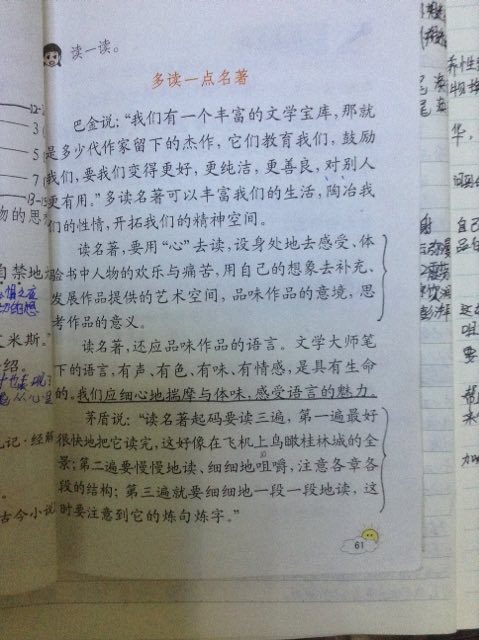 读一读。
多读一点名著
巴金说：“我们有一个丰富的文学宝库，那就
是多少代作家留下的杰作，它们教育我们，鼓励
我们，要我们变得更好，更纯洁，更善良，对别人
更有用。”多读名著可以丰富我们的生活，陶冶我
们的性情，开拓我们的精神空间。
读名著，要用“心”去读，设身处地去感受、体
验书中人物的欢乐与痛苦，用自己的想象去补充、
发展作品提供的艺术空间，品味作品的意境，思
考作品的意义。
读名著，还应品味作品的语言。文学大师笔
下的语言，有声、有色、有味、有情感，是具有生命
的。我们应细心地揣摩与体味，感受语言的魅力。
茅盾说：“读名著起码要读三遍，第一遍最好
很快地把它读完，这好像在飞机上鸟瞰桂林城的全
景；第二遍要慢慢地读、细细地咀嚼，注意各章各
段的结构；第三遍就要细细地一段一段地读，这
时要注意到它的炼句炼字。”
61
12
3
5
7
13
物的思
自禁地
艾米斯。”
绍。
札记·经解
古今小说
华，
自己
品的
要